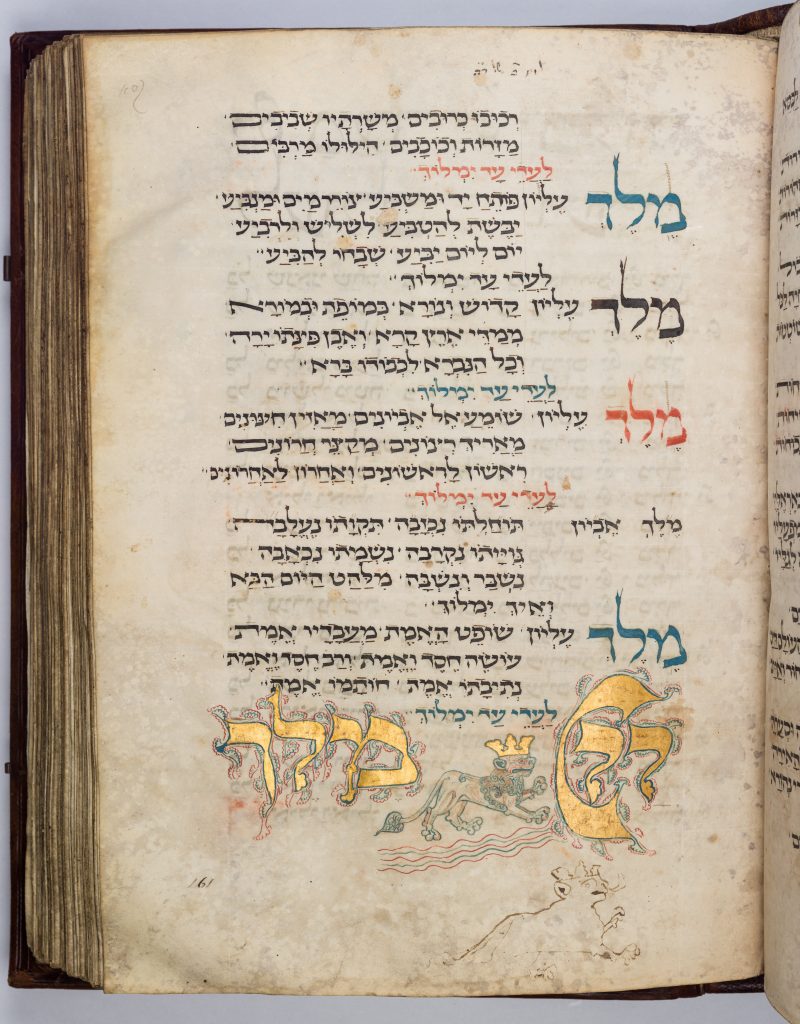 רכובו כרובים משרתיו שביבים
מזרות וכוכבים הילולו מרבים
לעדי עד ימלוך
מלך עליון פותח יד ומשביע צורר מים ומנביע
יבשת להטביע לשליש ולרביע
יום ליום יביע שבחו להביע
לעדי עד ימלוך
מלך עליון קדוש ונורא במופת ובמורא
ממדי ארץ קרא ואבן פינתו ירה
וכל הנברא לכבודו ברא
לעדי עד ימלוך
מלך עליון שומע אל אביונים מאזין חינונים
מאריך רצונים מקצר חרונים
ראשון לראשונים ואחרון לאחרונים
לעדי עד ימלוך
מלך אביון תוחלתו נכזבה תקותו נעלבה
גוייתו נקרבה נשמתו נכאבה
נשבר ונשבה מלהט היום הבא
ואיך ימלוך
מלך עליון שופט האמת מעבדיו אמת
עושה חסד ואמת ורב חסד ואמת
נתיבתו אמת חותמו אמת
לעדי עד ימלוך
מלך
161